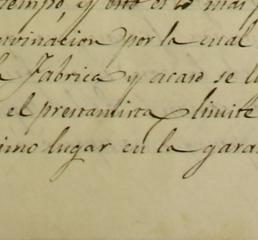 tiempo, y esto es lo mas
rvinacion por la cual
a Fabrica y acaso se l
el prestamista limite
imo lugar en la gara